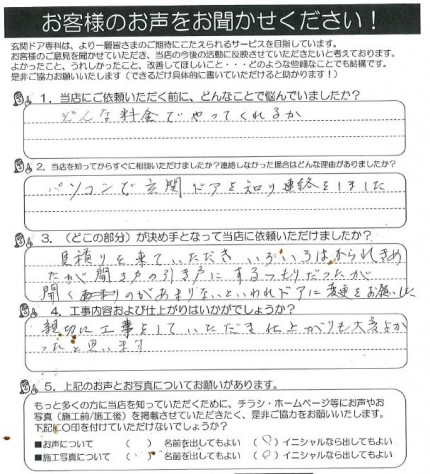 お客様のお声をお聞かせください！
玄関ドア専科は、より一層皆さまのご期待にこたえられるサービスを目指しています。
お客様のご意見を聞かせていただき、当店の今後の活動に反映させていただきたいと考えております。
よかったこと、うれしかったこと、改善してほしいこと・・・・どのような些細なことでも結構です。
是非ご協力お願いいたします（できるだけ具体的に書いていただけると助かります！）
1. 当店にご依頼いただく前に、どんなことで悩んでいましたか？
どんな料金でやってくれるか
2. 当店を知ってからすぐに相談いただけましたか？連絡しなかった場合はどんな理由がありましたか？
パソコンで玄関ドアを知り連絡をしました
3. （どこの部分）が決め手となって当店に依頼いただけましたか？
見積りを来ていただき いろいろはかられきめ
たが開き戸の引き戸にするつもりだったが
開くのがあまりないといわれドアに変更をお願いした
4. 工事内容および仕上がりはいかがでしょうか？
親切に工事をしていただき仕上がりも大変よか
ったと思います
5. 上記のお声とお写真についてお願いがあります。
もっと多くの方に当店を知っていただくために、チラシ・ホームページ等にお声やお
写真（施工前/施工後）を掲載させていただきたく、是非ご協力をお願いいたします。
下記に〇印を付けていただけないでしょうか？
■お声について （ ） 名前を出してもよい （○） イニシャルなら出してもよい
■施工写真について （ ） 名前を出してもよい （○） イニシャルなら出してもよい